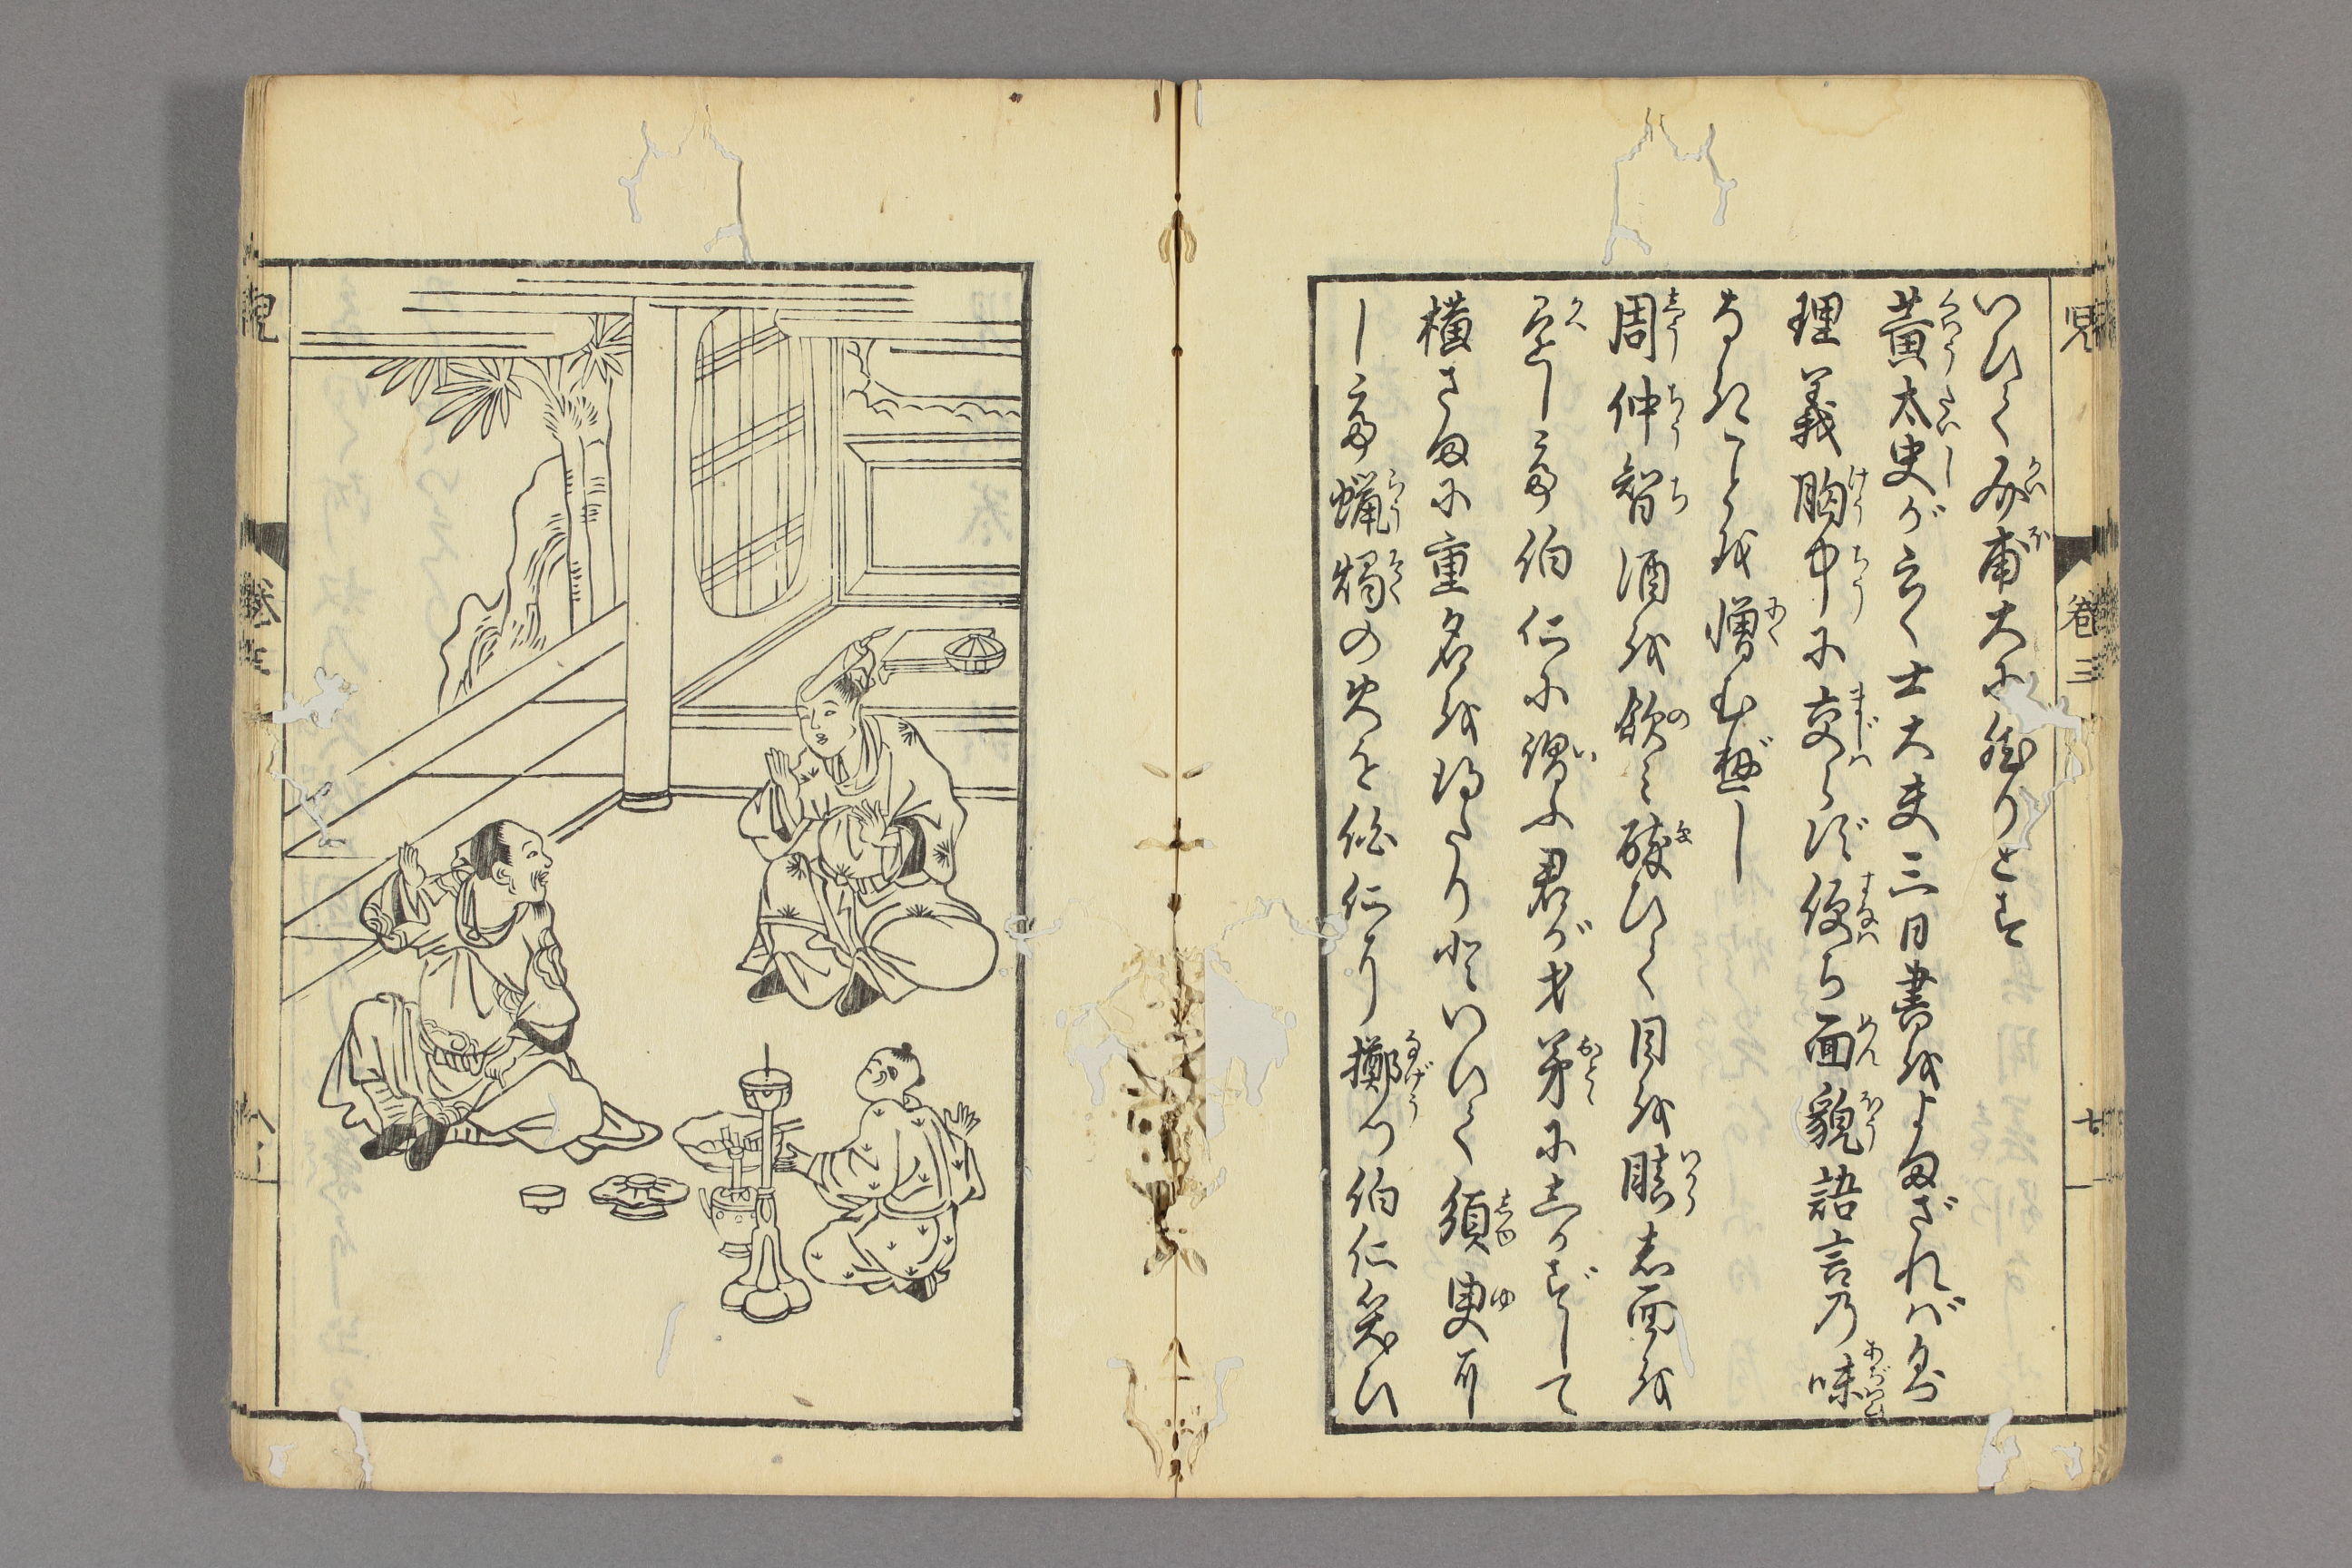 いひて介甫大に然りとす
黄太史が云く士大夫三日書をよまざれば則
理義胸中に交らず便ち面貌語言乃味
なきことを憎むべし
周仲智酒を飲み酔ひて目を瞋し面を
還して伯仁に謂ふ君が才弟に志かずして
横さまに重名を得たりといひて須臾に
して蝋燭の火を伯仁に擲つ伯仁笑ひ
巻三
七